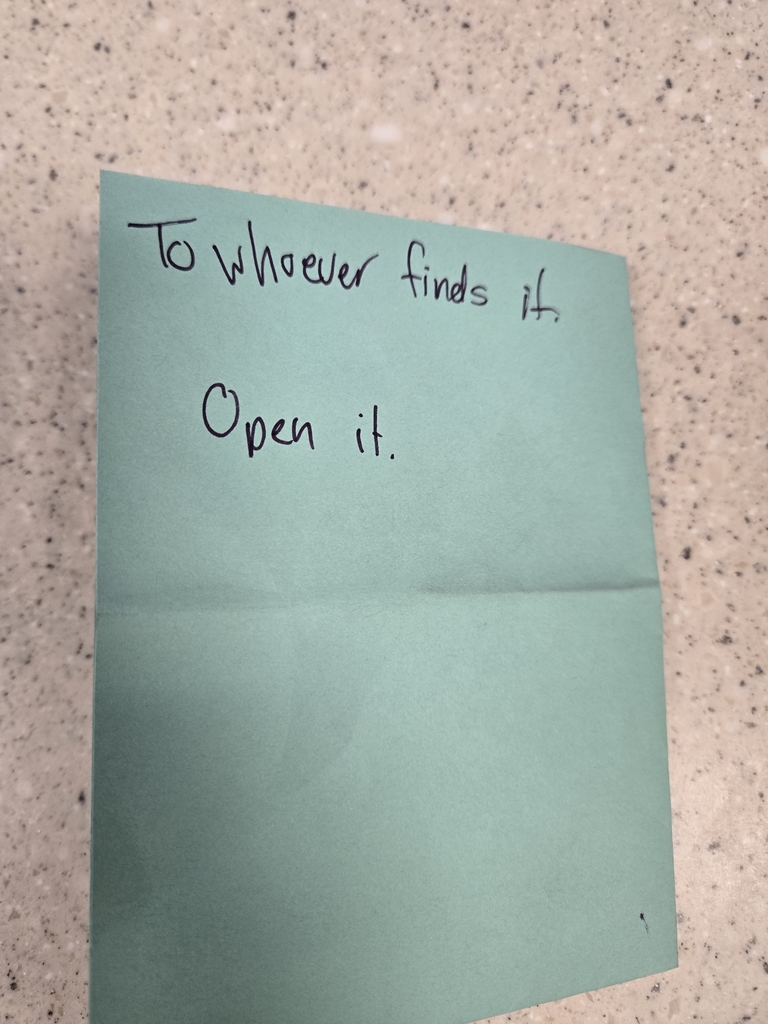 To whoever finds it.
Open it.